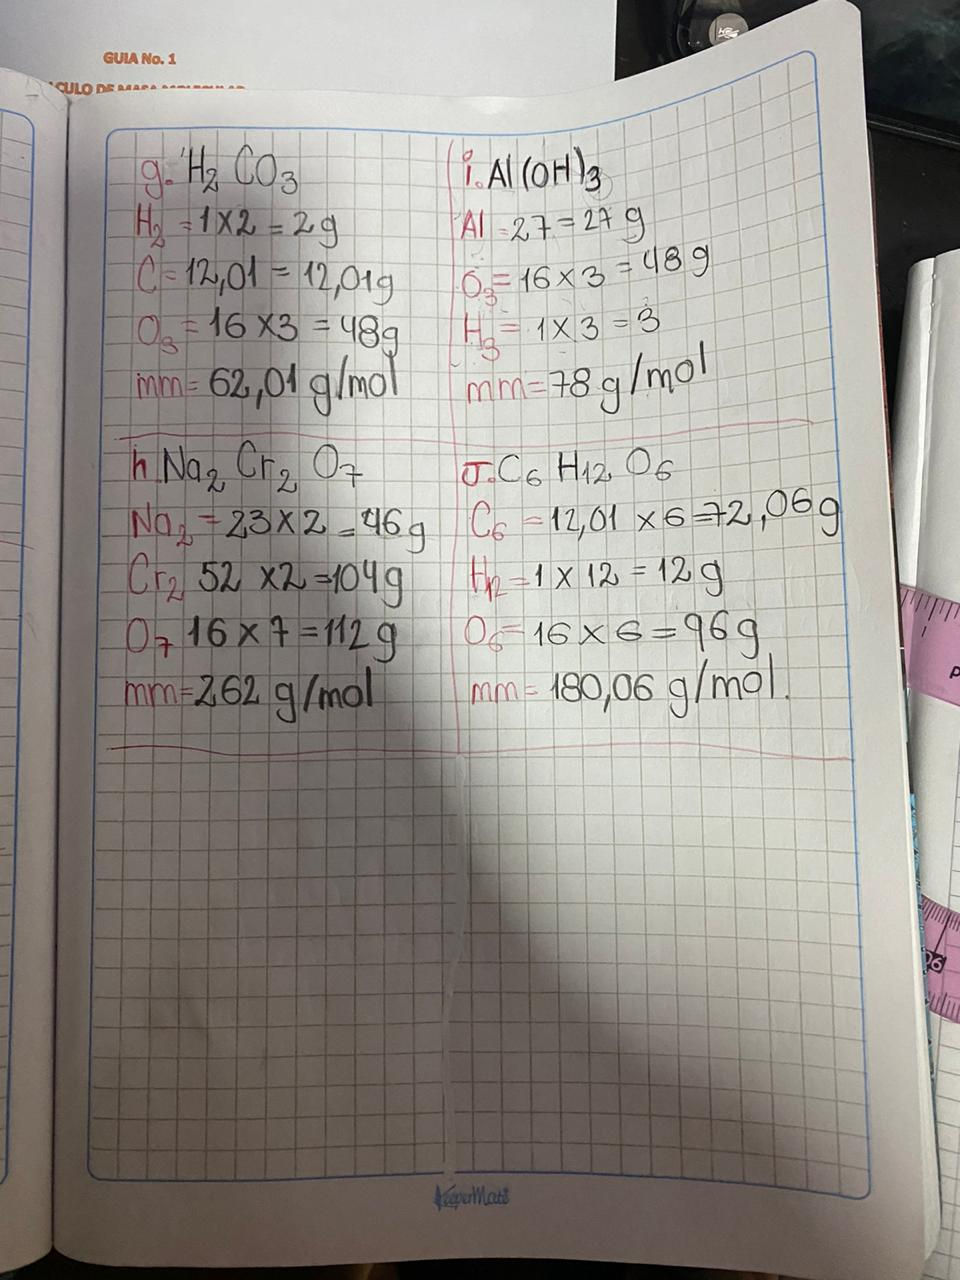 GUIA No. 1
CULO DE MASA MOLECULAR
g. H₂ CO₃
H₂ = 1x2 = 2g
C = 12,01 = 12,01g
O₃ = 16 x3 = 48g
mm= 62,01 g/mol
i. Al(OH)₃
Al = 27 = 27 g
O₃ = 16 x 3 = 48 g
H₃ = 1 x 3 = 3
mm= 78 g/mol
h. Na₂ Cr₂ O₇
Na₂ = 23 x 2 = 46g
Cr₂ 52 x2 =104g
O₇ 16 x 7 = 112 g
mm= 262 g/mol
J. C₆ H₁₂ O₆
C₆ = 12,01 x 6 = 72,06g
H₁₂ = 1 x 12 = 12 g
O₆ = 16 x 6 = 96g
mm= 180,06 g/mol.
KeeperMate